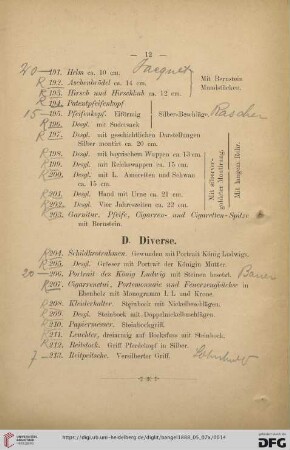 — 12 —
20 — 191. Helm ca. 10 cm.
R 192. Aschenbrödel ca. 14 cm.
R 193. Hirsch und Hirschkuh ca. 12 cm.
Mit Bernstein
Mundstücken.
R 194. Patentpfeifenkopf
15 — 195. Pfeifenkopf. Eiförmig
R 196. Desgl. mit Sudetuach
Silber-Beschläge.
Rascher
R 197. Desgl. mit geschichtlichen Darstellungen
Silber montirt ca. 20 cm.
R 198. Desgl. mit bayrischem Wappen ca. 13 cm
R 199. Desgl. mit Reichswappen ca. 15 cm.
R 200. Desgl. mit L. Amoretten und Schwan
ca. 15 cm.
R 201. Desgl. Hund mit Urne ca. 21 cm.
R 202. Desgl. Vier Jahreszeiten ca. 22 cm.
R 203. Garnitur, Pfeife, Cigarren- und Cigaretten-Spitze
mit Bernstein.
D. Diverse.
R 204. Schildkrotenhorn. Gewunden mit Portrait König Ludwigs.
R 205. Desgl. Grösser mit Portrait der Königin Mutter.
20 — 206. Portrait des König Ludwig mit Steinen besetzt. Bauer
R 207. Cigarrenetui, Portemonnaie und Feuerzeugbücher in
Ebenholz mit Monogramm L L und Krone.
R 208. Kleiderhalter. Bügelstock mit Nickelbeschlägen.
R 209. Desgl. Steinbock mit Doppelnickelbeschlägen.
R 210. Papiermesser. Steinbockgriff.
R 211. Leuchter, dreiarmig auf Rochsfuss mit Steinbock.
R 212. Reitstock. Griff Pferdekopf in Silber.
7 — 213. Reitpeitsche. Versilberter Griff.
http://digi.ub.uni-heidelberg.de/diglit/bangel1888_05_07a/0014
© Universitätsbibliothek Heidelberg
gefördert durch die
DFG